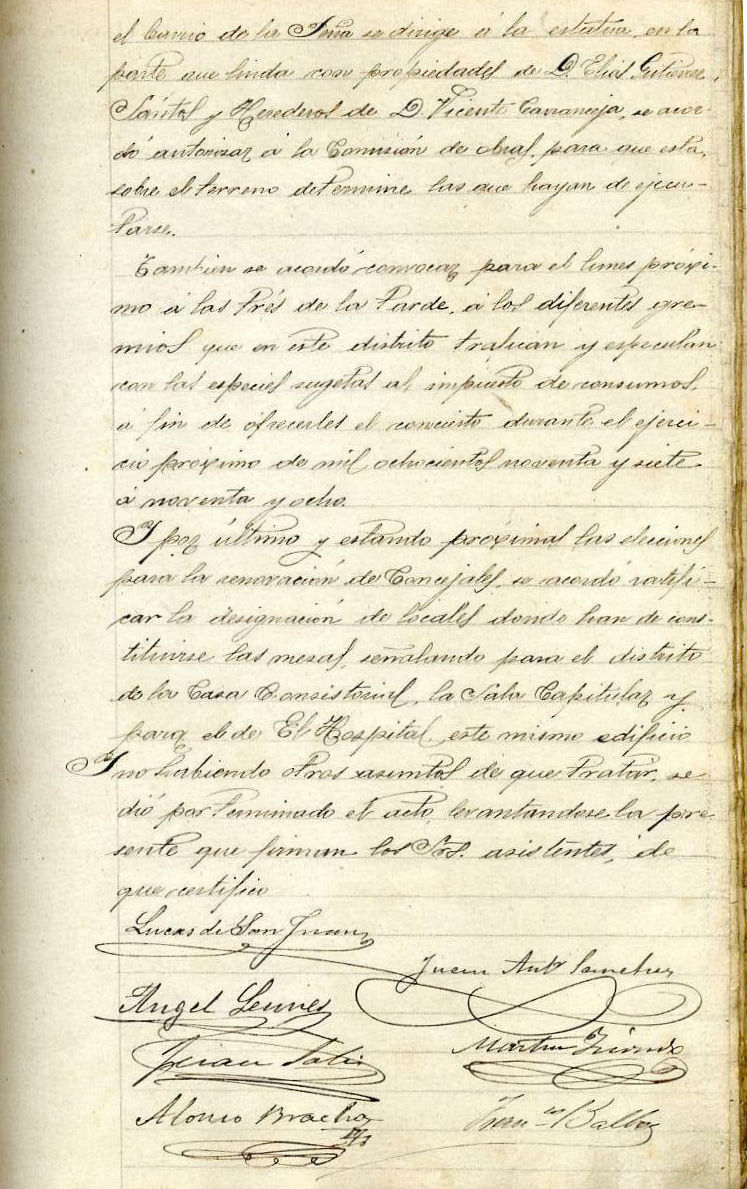 el barrio de la Peña se dirige á la estatua, en la
parte que linda con propiedades de D. Elias Gutierrez
Sántos y Herederos de D. Vicente Carranceja, se acor-
dó autorizar á la Comisión de obras para que esta,
sobre el terreno determine las que hayan de ejecu-
tarse.
Tambien se acordó convocar para el lunes próxi-
mo á las trés de la tarde, á los diferentes gre-
mios que en este distrito trafican y especulan
con las especies sugetas al impuesto de consumos,
á fin de ofrecerles el concierto durante el ejerci-
cio proximo de mil ochocientos noventa y siete
á noventa y ocho.
Y por último y estando próximas las elecciones
para la renovación de Concejales, se acordó ratifi-
car la designación de locales donde han de cons-
tituirse las mesas, señalando para el distrito
de la Casa Consistorial, la Sala Capitular y
para el de El Hospital, este mismo edificio
Y no habiendo otros asuntos de que tratar, se
dió por terminado el acto, levantandose la pre
sente que firman los Srs. asistentes, de
que certifico
Lucas de San Juan
Juan Anto Sanchez
Angel
Juan
Martin
Alonso
Balboa